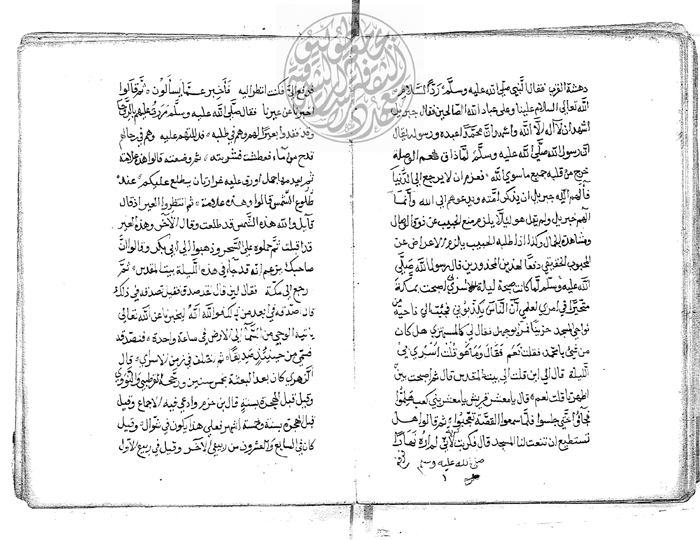 دهشة القرب فقال النبي صلى الله عليه وسلم رد السلام
الله تعالى السلام علينا وعلى عباد الله الصالحين فقال جبريل
اشهد ان لا اله الا الله واشهد ان محمدا عبده ورسوله
رسول الله صلى الله عليه وسلم لما ذاق طعم الوصلة
خرج من قلبه جميع ما سوى الله فعزم ان لا يرجع الى الدنيا
فألهم الله جبريل ان يذكر امته ويدعوهم الى الله وانما
الهم جبريل ولم يلهم هو ليلا يلزم منع الحبيب عن ذوق الوصال
ومشاهدة الجمال وكذا اذا طلبه الحبيب يلزم الاعراض عن
المحبوب الحقيقي دفعا المحذورين قال رسول الله صلى
الله عليه وسلم لما كان صبيحة ليلة اسري اصبحت بمكة
متحيرا في امري لعلمي ان الناس يكذبوني فبت الى ناحية من
نواحي المسجد حزينا فمر ابو جهل فقال لي كالمستهزئ هل كان
من شئ يا محمد فقلت نعم فقال وما هو قلت اسري بي
الليلة قال الى اين قلت الى بيت المقدس قال ثم اصبحت بين
اظهرنا قلت نعم قال يا معشر قريش يا معشر بني كعب هلموا
فجاؤا حتى جلسوا فلما سمعوا القصة تعجبوا ثم قالوا هل
تستطيع ان تنعت لنا المسجد قال فكربت لأني لم اره نهارا
صلى الله عليه وسلم
فوقع الي فكنت انظر اليه فأخبر عما يسألون ثم قالوا
اخبرنا عن عيرنا فقال صلى الله عليه وسلم مررت عليهم بالروحا
وقد فقدوا بعيرا لهم وهم في طلبه وهم في
قدح من ماء فعطشت فشربته ثم وضعته قالوا هذه علامة
جمل اورق عليه غرارتان يطلع عليكم عند
طلوع الشمس قالوا وهذه علامة ثم انتظروا العير اذ قال
قائل والله هذه الشمس قد طلعت وقال الآخر وهذه العير
قد اقبلت ثم حملوه على السحر وذهبوا الى ابي بكر وقالوا ان
صاحبك يزعم انه قد جاء في هذه الليلة بيت المقدس ثم
رجع الى مكة فقال لئن قال فقد صدق فقيل تصدقه في ذلك
قال صدقه في ابعد من ذلك فوالله انه ليخبر ان عن الله تعالى
يأتيه الوحي من السماء الى الارض في ساعة واحدة فنصدقه
فسمي من حينئذ صديقا ثم في زمن الاسراء قال
الزهري كان بعد البعثة بخمس سنين ورجحه القرطبي والنووي
وقيل قبل الهجرة بسنة قال بن حزم وادعي فيه الاجماع وقيل
قبل الهجرة بسنة وخمسة اشهر فعلى هذا يكون في شوال وقيل
كان في السابع والعشرون من ربيع الآخر وقيل في ربيع الاول